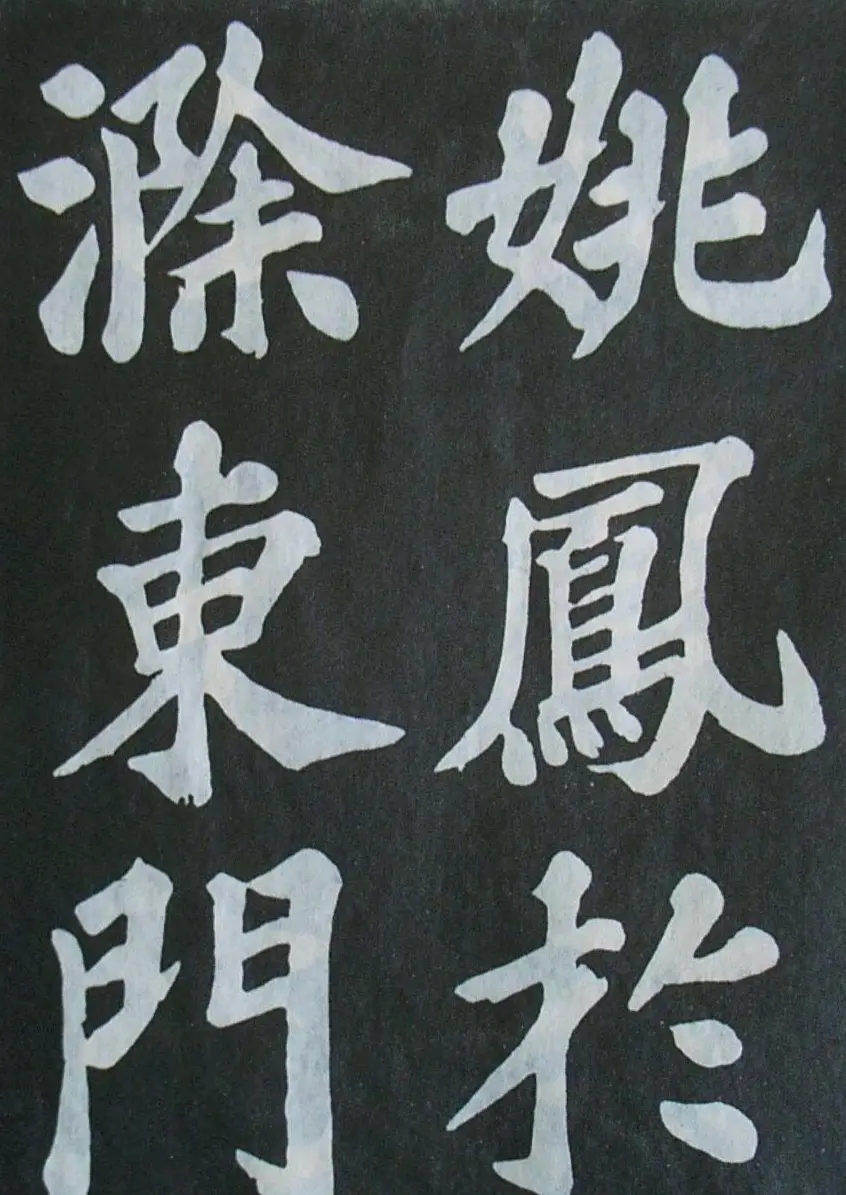 姚鳳於
滁東門